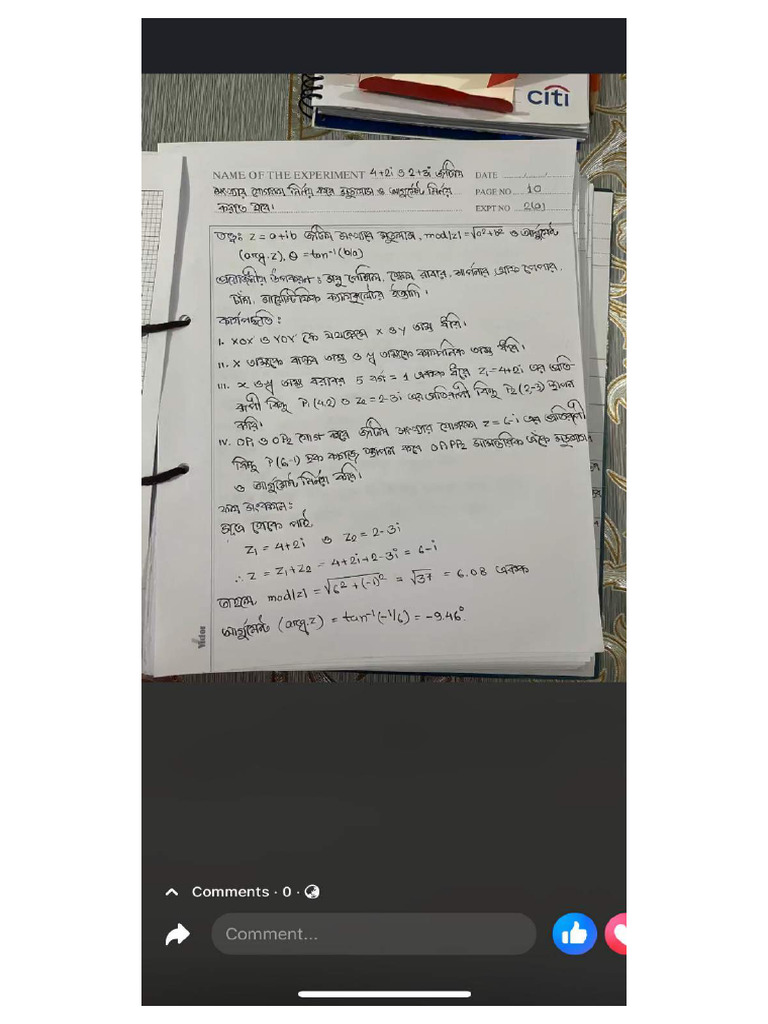 citi
NAME OF THE EXPERIMENT 4+2i ও 2+3i জটিল DATE ....../....../......
সংখ্যার যোগফল নির্ণয় করে মডুলাস ও আর্গুমেন্ট নির্ণয় PAGE NO 10
করতে হবে। EXPT NO 2(a)
তত্ত্ব: z = a+ib জটিল সংখ্যার মডুলাস, mod|z| = √a²+b² ও আর্গুমেন্ট
(arg.z), θ = tan⁻¹(b/a)
প্রয়োজনীয় উপকরণ: পেন্সিল, রাবার, শার্পনার, গ্রাফ পেপার,
সায়েন্টিফিক ক্যালকুলেটর ইত্যাদি।
কার্যপদ্ধতি:
I. XOX' ও YOY' কে যথাক্রমে x ও y অক্ষ ধরি।
II. X অক্ষকে বাস্তব অক্ষ ও y অক্ষকে কাল্পনিক অক্ষ ধরি।
III. x ও y অক্ষ বরাবর 5 বর্গ = 1 একক ধরে Z₁ = 4+2i এর প্রতি-
রূপী বিন্দু P₁(4,2) ও Z₂ = 2-3i এর প্রতিরূপী বিন্দু P₂(2,-3) স্থাপন
করি।
IV. OP₁ ও OP₂ যোগ করে জটিল সংখ্যার যোগফল z = 6-i এর প্রতিরূপী
বিন্দু P(6,-1) ছক কাগজে স্থাপন করে OP₁PP₂ সামান্তরিক এঁকে মডুলাস
ও আর্গুমেন্ট নির্ণয় করি।
ফল সংকলন:
সূত্র থেকে পাই,
Z₁ = 4+2i ও Z₂ = 2-3i
∴ Z = Z₁+Z₂ = 4+2i+2-3i = 6-i
তাহলে mod|z| = √6²+(-1)² = √37 = 6.08 একক
আর্গুমেন্ট (arg.z) = tan⁻¹(-1/6) = -9.46°.
Victor
Comments · 0 ·
Comment...